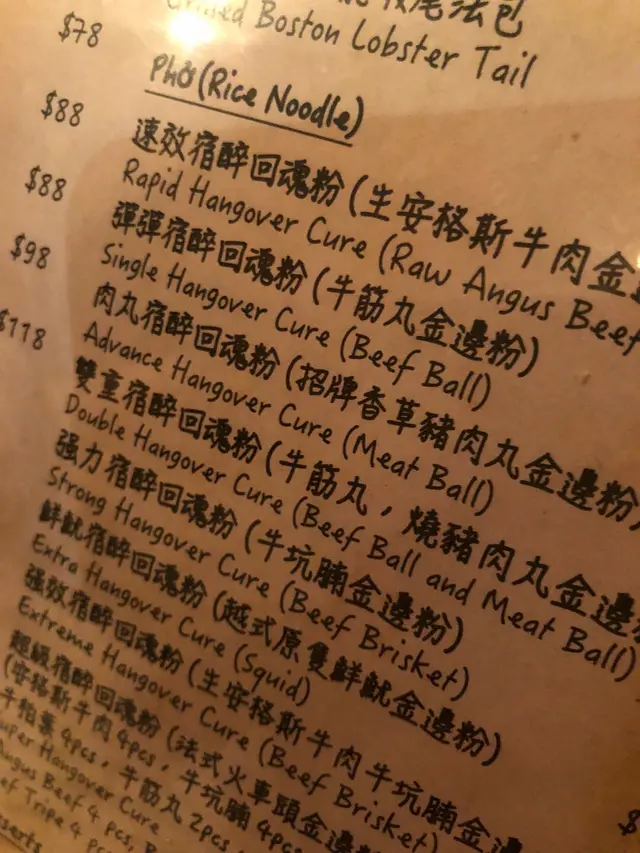 尾法包
Grilled Boston Lobster Tail
$78
Phở (Rice Noodle)
$88
速效宿醉回魂粉 (生安格斯牛肉金邊
Rapid Hangover Cure (Raw Angus Beef
$88
彈彈宿醉回魂粉 (牛筋丸金邊粉)
Single Hangover Cure (Beef Ball)
$98
肉丸宿醉回魂粉 (招牌香草豬肉丸金邊粉)
Advance Hangover Cure (Meat Ball)
$118
雙重宿醉回魂粉 (牛筋丸，燒豬肉丸金邊
Double Hangover Cure (Beef Ball and Meat Ball)
强力宿醉回魂粉 (牛坑腩金邊粉)
Strong Hangover Cure (Beef Brisket)
鮮魷宿醉回魂粉 (越式原隻鮮魷金邊粉)
Extra Hangover Cure (Squid)
强效宿醉回魂粉 (生安格斯牛肉牛坑腩金邊
Extreme Hangover Cure (Beef Brisket)
超級宿醉回魂粉 (法式火車頭金邊粉
(安格斯牛肉4pcs，牛坑腩4pcs
牛柏葉4pcs，牛筋丸2pcs，
Super Hangover Cure
Angus Beef 4 pcs,
Beef Tripe 4 pcs
Desserts
$